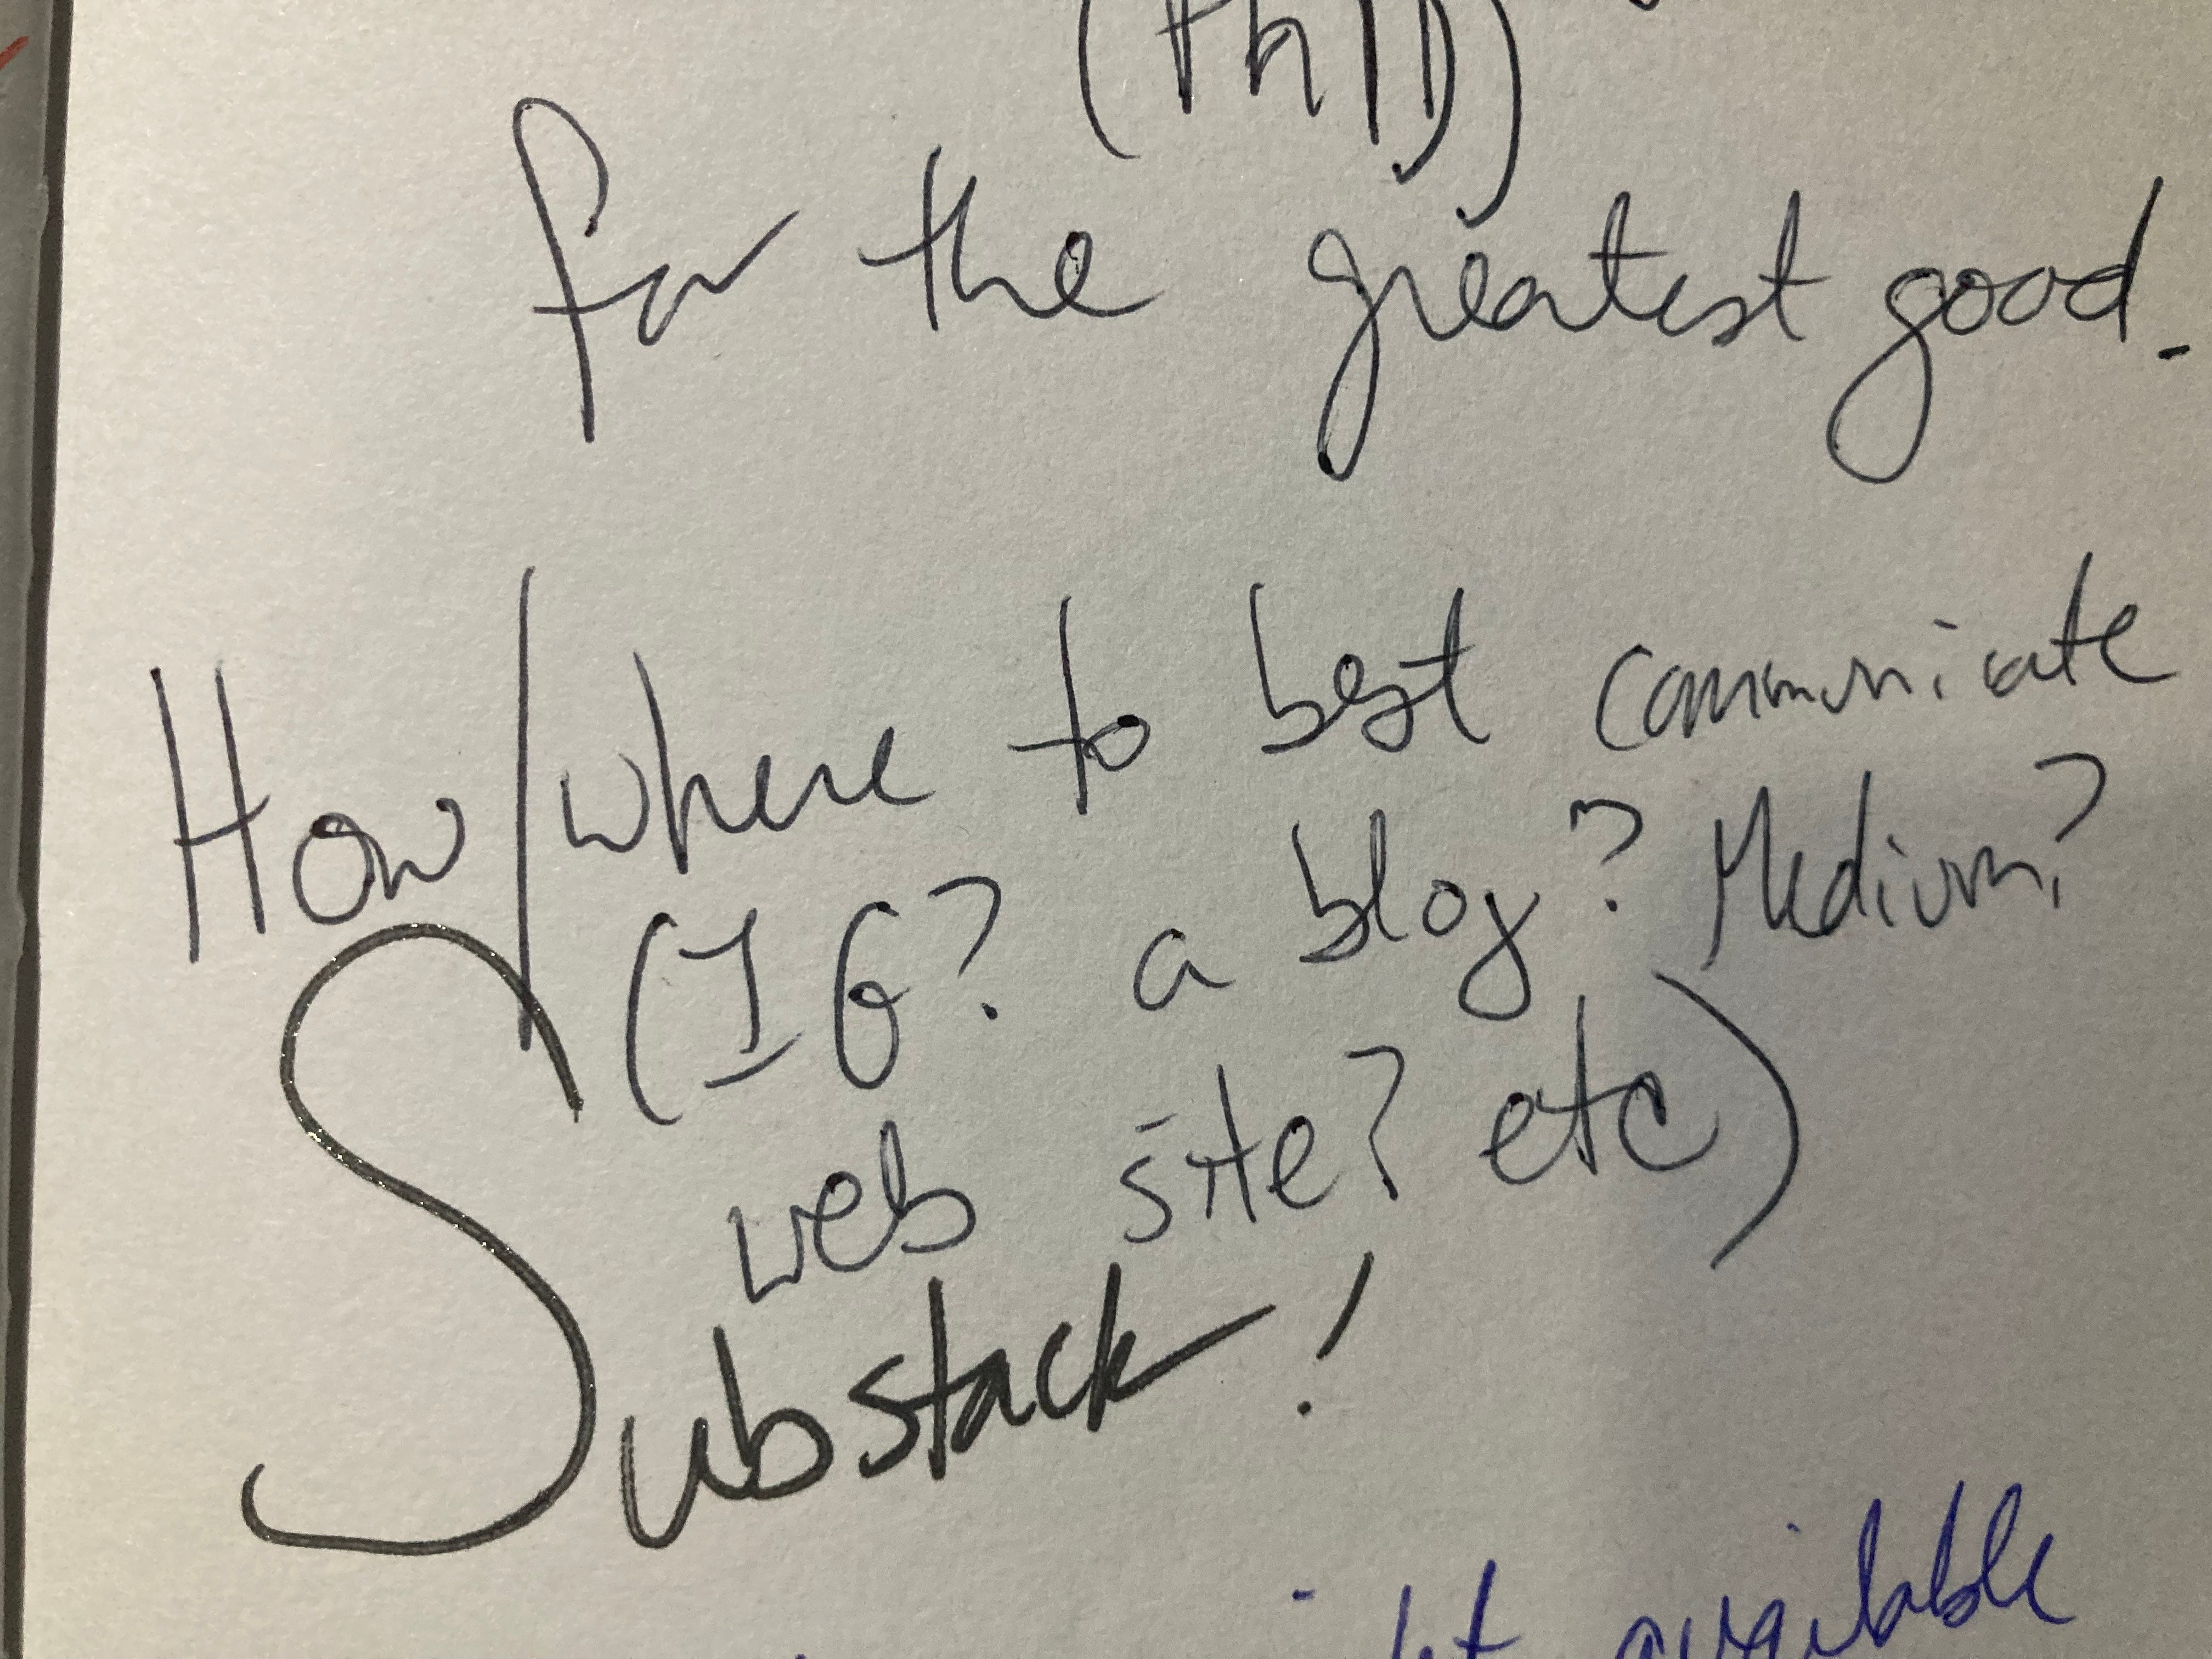 (PhD)
for the greatest good.
How/where to best communicate
(IG? a blog? Medium?
web site? etc)
Substack!
available